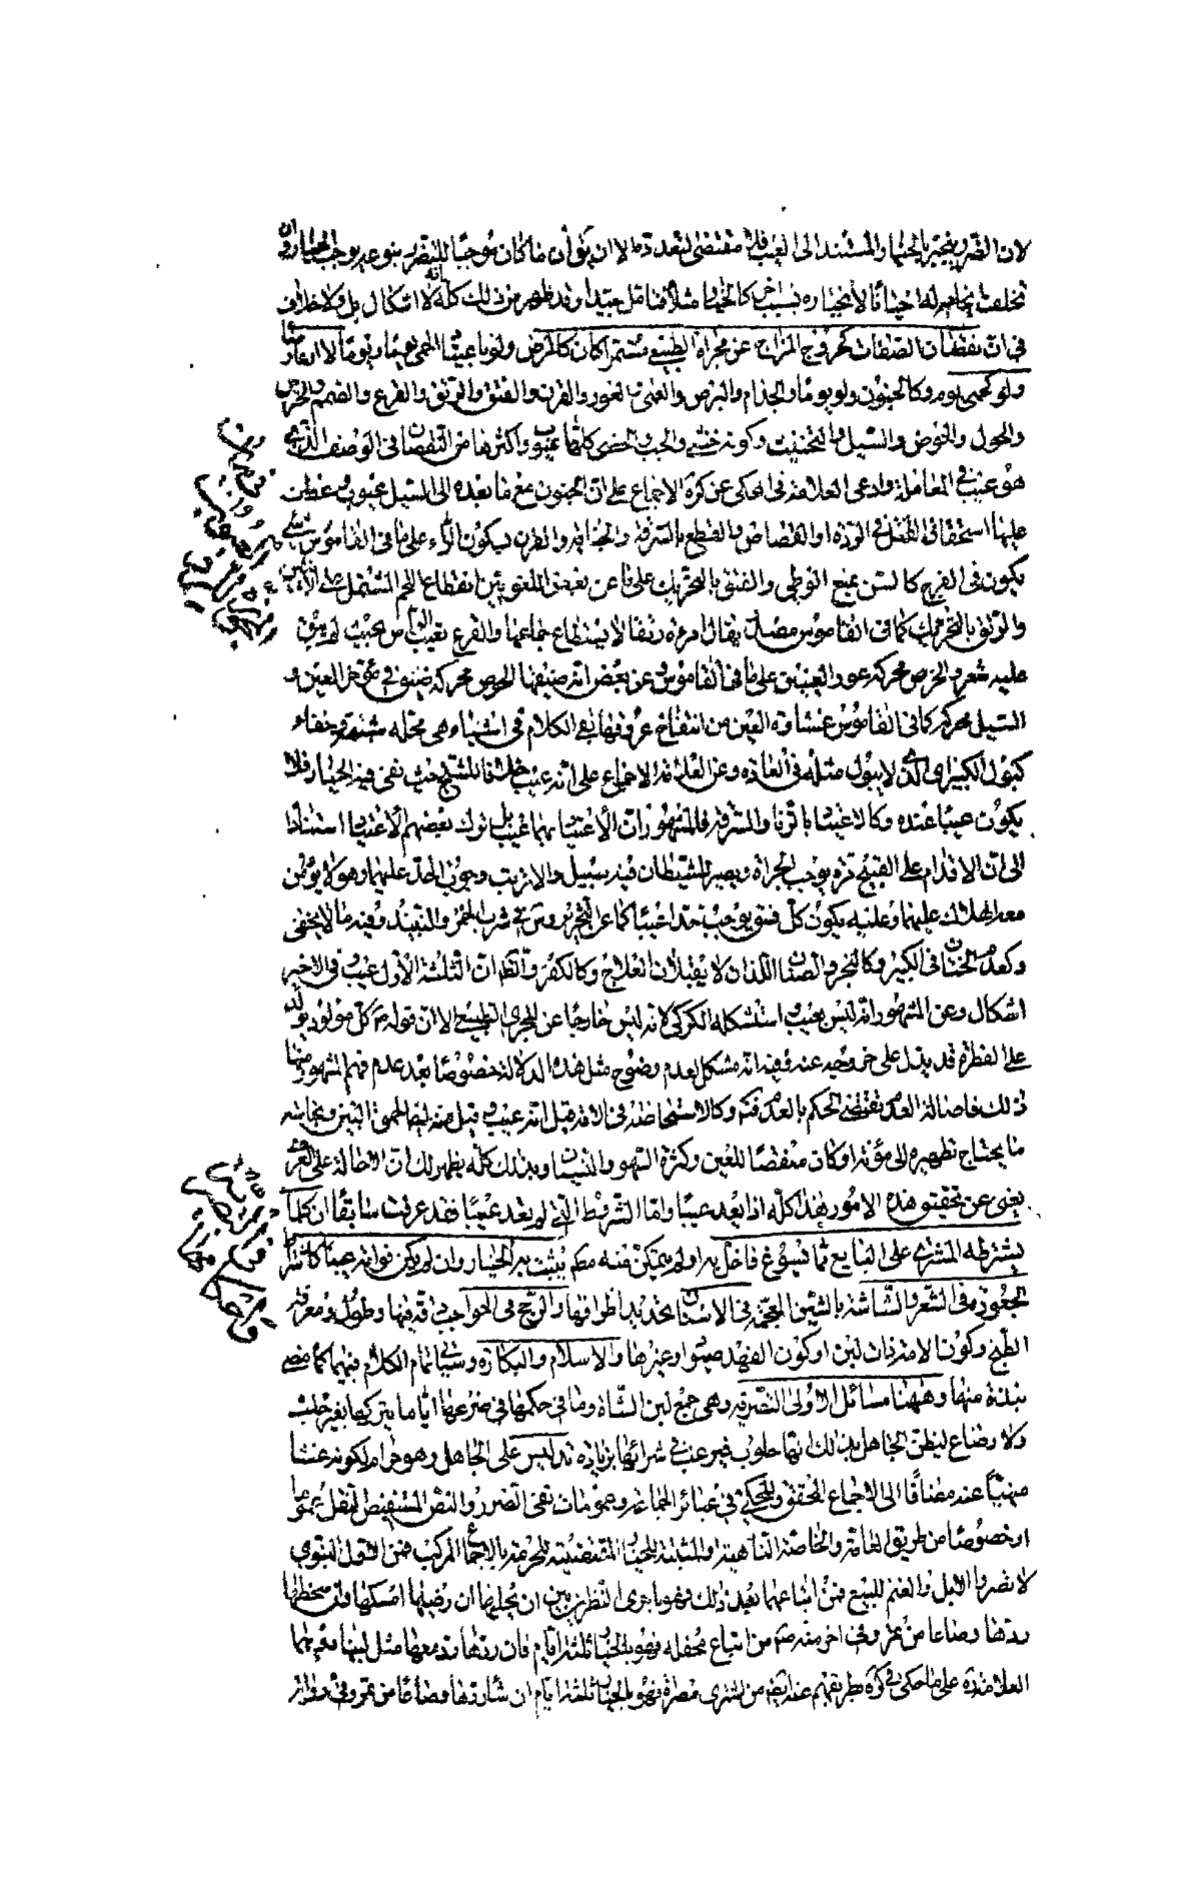 لان الضرر ينجبر بالخيار المستند الى العيب فلا مقتضى لتعدده الا ان يق ان ما كان موجبا للتضرر بنوعه يوجب الخيار وان
تخلف انجباره احيانا لانجباره بسبب اخر كالخيار مثلا فتامل جيدا وقد ظهر من ذلك كله انه لا اشكال بل ولا خلاف
في ان نقصان الصفات كخروج المزاج عن مجراه الطبيعي مستمرا كان كالمرض ولو يوما
ولو كحمى يوم وكالجنون ولو يوما والجذام والبرص والعمى والعور والقرن والفتق والرتق والقرع والصمم والخرس
والحول والخوص والسبل والتخنيث وكونه خنثى والجب والخصى كلها عيوب واكثرها من النقصان في الوصف الذي
هو عيب في المعاملة وادعى العلامة في المحكى عن كره الاجماع على ان الجنون مع ما بعده الى السبل عيوب وعطف
عليها استحقاق القتل في الردة او القصاص والقطع بالسرقة والجناية والقرن بسكون الراء على ما في القاموس شيء
يكون في الفرج كالسن يمنع الوطي والفتق بالتحريك على ما عن بعض اللغويين انقطاع اللحم المشتمل على الانثيين
والرتق بالتحريك كما في القاموس مصدر يقال امرءة رتقا لا يستطاع جماعها والقرع بحيث لم يبق
عليه شعر والخوص محركة غور العينين على ما في القاموس وعن بعض انه ضيقها الحوص محركة ضيق في مؤخر العين و
السبل محركة كما في القاموس غشاوة العين من انتفاخ عروقها بقي الكلام في اشياء هي محله شبهة وخفاء
كبول الكبير اي الذي لا يبول مثله في العادة وعن العلامة الاجماع على انه عيب خلافا للشيخ حيث نفى فيه الخيار فلا
يكون عيبا عنده وكالاعتياد بالزنا والسرقة فالمشهور ان الاعتياد بهما عيب بل ترك بعضهم الاعتياد استنادا
الى ان الاقدام على القبيح مرة يوجب الجرأة ويصير للشيطان فيه سبيل ولا ريب وجوب الحد عليهما وهو لا يؤمن
معه الهلاك عليهما وعليه يكون كل فسق يوجب حدا عيبا كما عن التحرير وس في شرب الخمر والنبيذ وفيه ما لا يخفى
وكعدم الختان في الكبير وكالبخر والصنان اللذان لا يقبلان العلاج وكالكفر والظ ان الثلثة الاول عيب وفي الاخير
اشكال وعن المشهور انه ليس بعيب واستشكله الكركي لانه ليس خارجا عن المجرى الطبيعي الا ان قوله ص كل مولود يولد
على الفطرة قد يدل على خروجه عنه وفيه انه مشكل لعدم وضوح مثل هذه الدلالة خصوصا بعد عدم فهم المشهور منها
ذلك فاصالة العدم تقتضى الحكم بالعدم فتم وكالاستحاضة في الامة قيل انه عيب وقيل منه ايضا الحمق البين ونجاسة
ما يحتاج تطهيره الى مؤنة او كان منقصا للعين وكثرة السهو والنسيان وبذلك كله يظهر لك ان الاحالة على العرف
يغنى عن تحقيق هذه الامور هذا كله اذا يعد عيبا واما الشروط التي لم يعد عيبا فقد عرفت سابقا ان كلما
يشترطه المشترى على البايع مما يسوغ فاخل به او لم يتمكن منه مطم يثبت به الخيار وان لم يكن فواته عيبا كاشتراط
الجعودة في الشعر والشاشة بالشين المعجمة في الاسنان تحديد اطرافها والزجج في الحواجب دقة فيها وطول ومعرفة
الطبخ وكون الامة ذات لبن او كون الفهد صيودا وغيرها والاسلام والبكارة وسياتي تمام الكلام فيهما كما مضى
نبذة منها وههنا مسائل الاولى التصرية وهي جمع لبن الشاة وما في حكمها في ضرعها اياما بتركها بغير حلب
ولا رضاع ليظن الجاهل بذلك انها حلوب فيرغب في شرائها بزيادة تدليس على الجاهل وهو حرام لكونه غشا
منهيا عنه مضافا الى الاجماع المحقق والمحكى في عبائر الجماعة وعمومات نفى الضرر والنص المستفيض النقل عموما
او خصوصا من طريق العامة والخاصة الناهية او المثبتة للخيار المقتضية للحرمة بالاجماع المركب فمن القول النبوى
لا تصروا الابل والغنم للبيع فمن ابتاعها بعد ذلك فهو بخير النظرين بعد ان يحلبها ان رضيها امسكها وان سخطها
ردها وصاعا من تمر وفي اخر عنه ص من ابتاع محفلة فهو بالخيار ثلثة ايام فان ردها رد معها مثل لبنها قمحا
العلامة ره على ما حكى في كره بطريقهم عنه ايضا من اشترى مصراة فهو بالخيار ثلثة ايام ان شاء ردها وصاعا من تمر وفي رواية